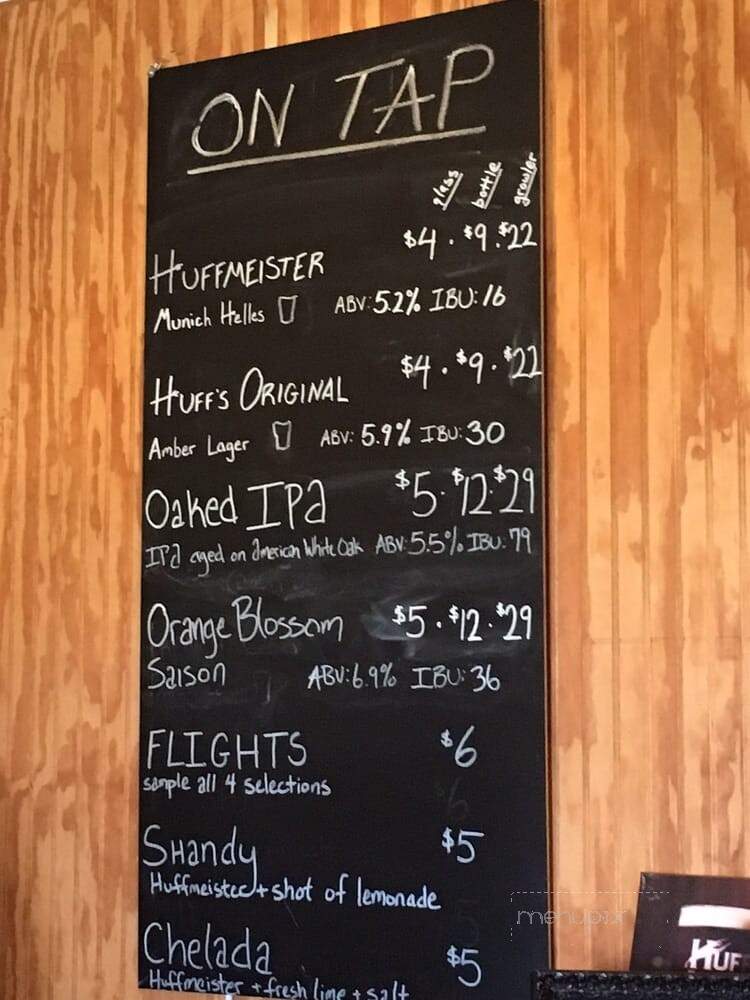 ON TAP
glass bottle growler
HUFFMEISTER $4 . $9 . $22
Munich Helles ABV: 5.2% IBU: 16
HUFF'S ORIGINAL $4 . $9 . $22
Amber Lager ABV: 5.9% IBU: 30
Oaked IPA $5 . $12 . $29
IPA aged on American White Oak ABV: 5.5% IBU: 79
Orange Blossom $5 . $12 . $29
Saison ABV: 6.9% IBU: 36
FLIGHTS $6
sample all 4 selections
SHandy $5
Huffmeister + shot of lemonade
Chelada $5
Huffmeister + fresh lime + salt
menupix
HUF